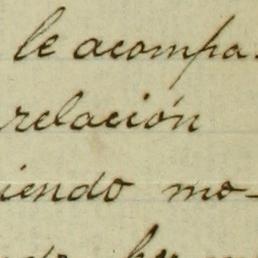 le acompa-
relación
iendo mo-